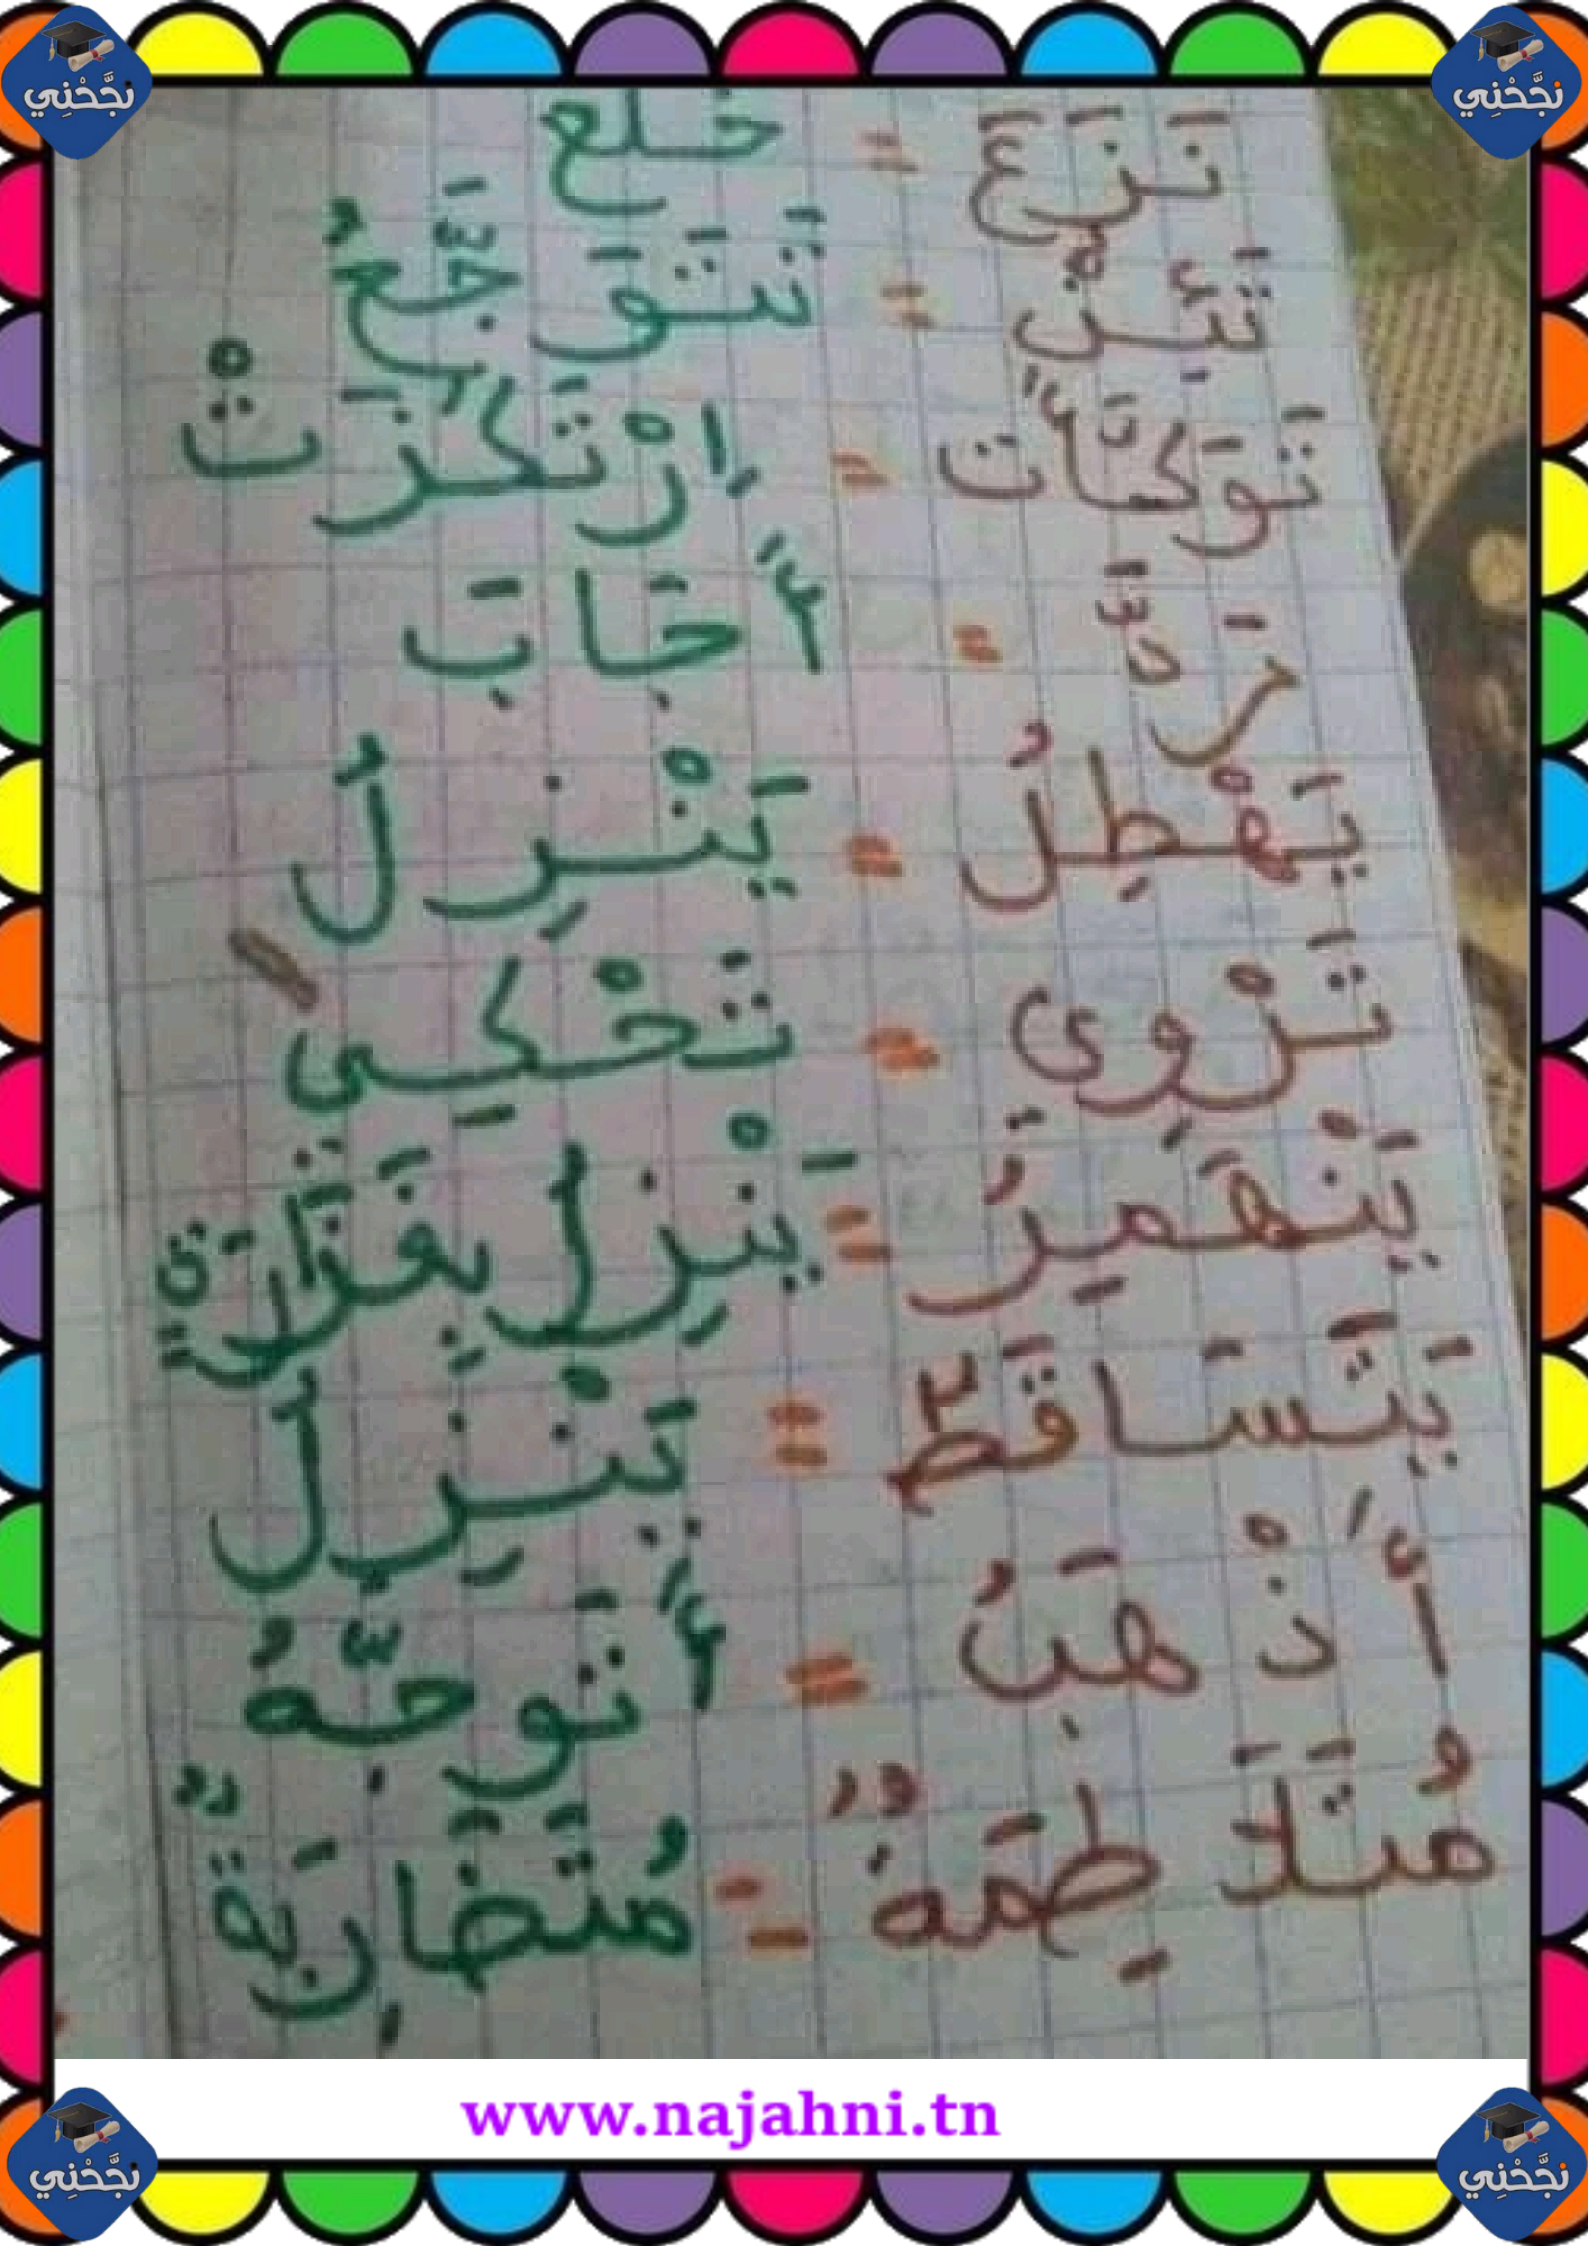 نَجَّحْنِي
نَجَّحْنِي
نَزَعَ = خَلع
تَئِنُّ = تَتَوَجَّعُ
تَوَكَّأَت = اِرْتَكَزَتْ
رَدَّ = أَجَابَ
يَهْطِلُ = يَنْزِلُ
تَرْوِي = تَحْكِي
يَنْهَمِرُ = يَنْزِلُ بِغَزَارَةٍ
يَتَسَاقَطُ = يَنْزِلُ
أَذْهَبُ = أَتَوجَّهُ
مُتَلَاطِمَةٌ = مُتَضَارِبَةٌ
www.najahni.tn
نَجَّحْنِي
نَجَّحْنِي